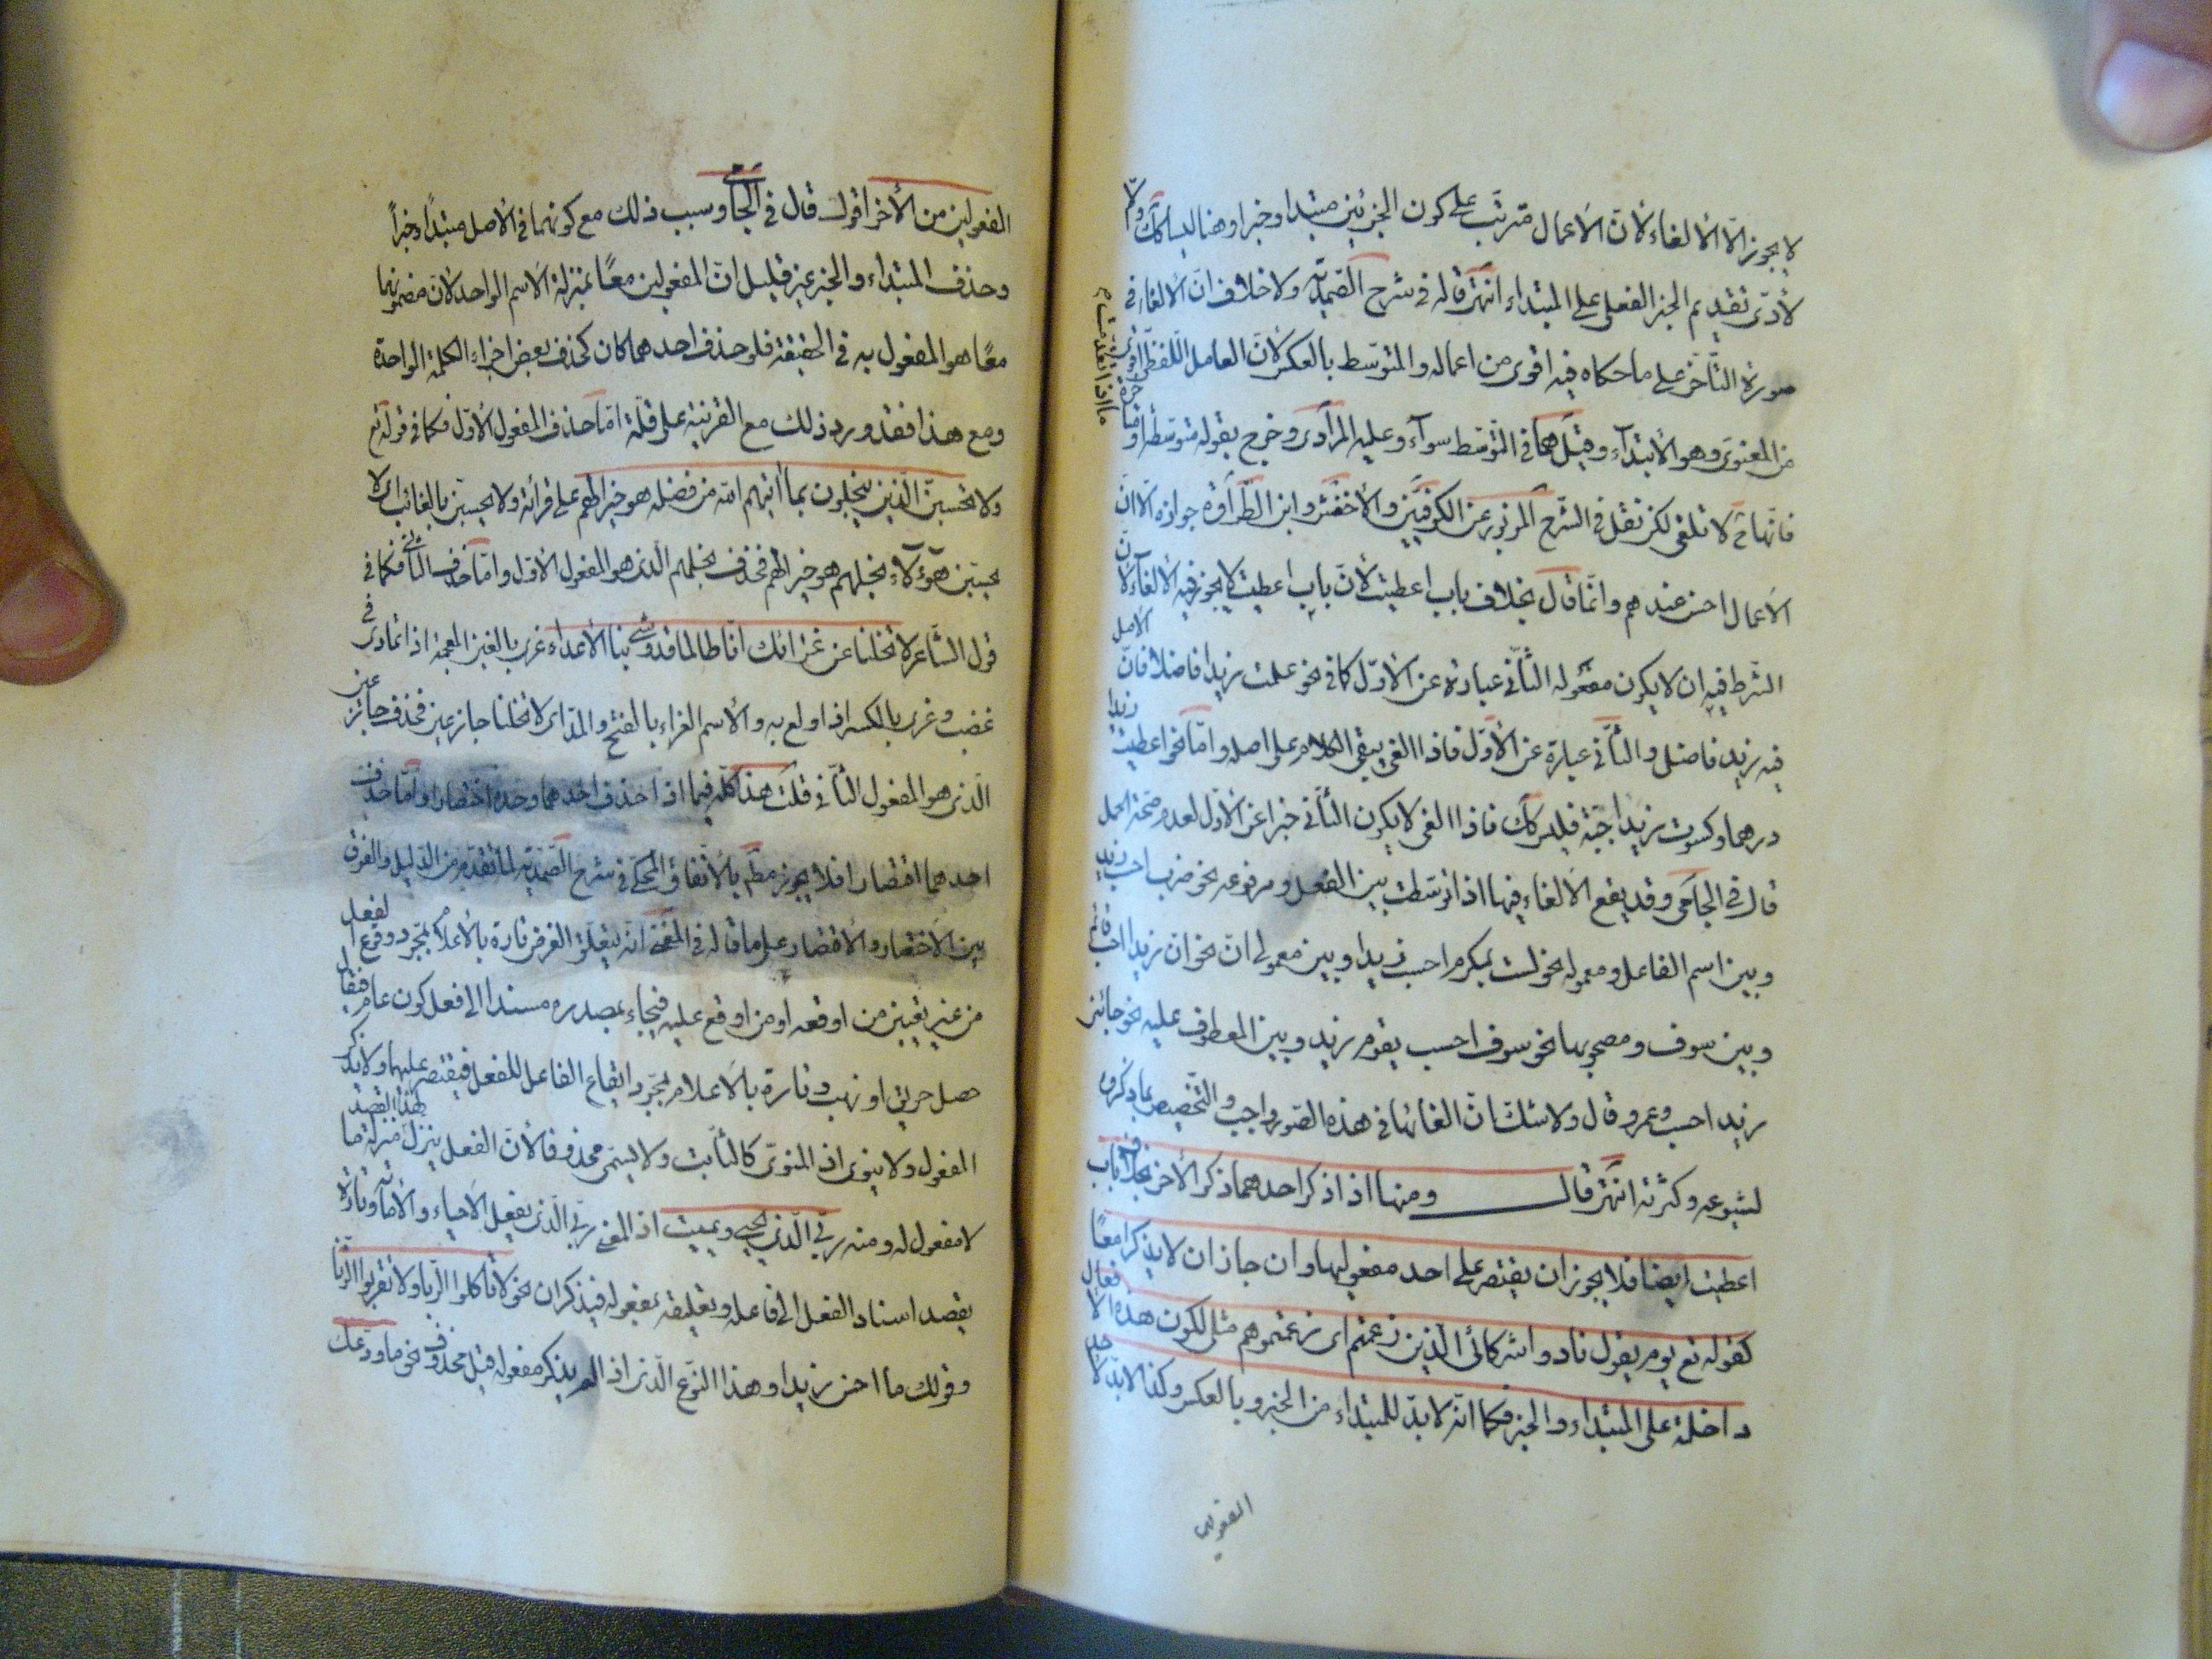 لا يجوز الّا الالغاء لانّ الاعمال مترتّب على كون الجزئين مبتدا وخبرا وهنا ليسا كك ولا
لادّى تقديم الخبر الفعلى على المبتداء انتهى قاله فى شرح الصّمديّة ولا خلاف انّ الالغاء فى
صورة التّأخّر على ما حكاه فيه اقوى من اعماله والمتوسّط بالعكس لانّ العامل اللّفظى اقوى
من المعنوى وهو الابتدآء وقيل هما فى التّوسّط سوآء وعليه المرادى وخرج بقوله متوسّطة او متأخرة ما اذا تقدمت
فانّها ح لا تلغى لكن نقل فى الشّرح المزبور عن الكوفيّين والاخفش وابن الطّراوة جوازه الّا انّ
الاعمال احسن عندهم وانّما قال بخلاف باب اعطيت لانّ باب اعطيت لا يجوز فيه الالغآء لانّ
الشّرط فيه ان لا يكون مفعوله الثّانى عبارة عن الاوّل كما فى نحو علمت زيدا فاضلا فانّ الاصل
فيه زيد فاضل والثّانى عبارة عن الاوّل فاذا الغى يبقى الكلام على اصله وامّا نحو اعطيت زيدا
درهما وكسوت زيدا جبّة فليس كك فاذا الغى لا يكون الثّانى خبرا عن الاوّل لعدم صحّة الحمل
قال فى الجامى وقد يقع الالغاء فيها اذا توسّطت بين الفعل ومرفوعه نحو ضرب احسب زيد
وبين اسم الفاعل ومعموله نحو لست بمكرم احسب زيدا وبين معمولى انّ نحو انّ زيدا احسب قائم
وبين سوف ومصحوبها نحو سوف احسب يقوم زيد وبين المعطوف عليه نحو جائنى
زيد احسب وعمرو قال ولا شكّ انّ الغائها فى هذه الصّور واجب والتّخصيص بما ذكروه
لشيوعه وكثرته انتهى قال ومنها اذا ذكر احدهما ذكر الآخر بخلاف باب
اعطيت ايضا فلا يجوز ان يقتصر على احد مفعوليها وان جاز ان لا يذكرا معًا
كقوله تع يوم يقول نادوا شركائى الّذين زعمتم اى زعمتموهم مثلى لكون هذه الافعال
داخلة على المبتداء والخبر فكما انّه لابدّ للمبتداء من الخبر وبالعكس وكذا لابدّ لاحد
المفعولين
المفعولين من الآخر اقول قال فى الجامى وسبب ذلك مع كونهما فى الاصل مبتدًا وخبرًا
وحذف المبتداء والخبر غير قليل انّ المفعولين معًا بمنزلة الاسم الواحد لانّ مضمونهما
معًا هو المفعول به فى الحقيقة فلو حذف احدهما كان كحذف بعض اجزاء الكلمة الواحدة
ومع هذا فقد ورد ذلك مع القرينة على قلّة امّا حذف المفعول الاوّل فكما فى قوله تع
ولا تحسبنّ الّذين يبخلون بما اتيهم اللّه من فضله هو خيرا لهم على قرائة ولا يحسبنّ بالغائب اى لا
يحسبنّ هؤلآء بخلهم هو خيرا لهم فحذف بخلهم الّذى هو المفعول الاوّل وامّا حذف الثّانى فكما فى
قول الشّاعر لا تخلنا عن غرائك انّا طالما قد وشى بنا الاعداء غرى بالغين المعجمة اذا تمادى فى
غضب وغرى بالكسر اذا اولع به والاسم الغراء بالفتح والمدّ اى لا تخلنا جازعين فحذف جازعين
الّذى هو المفعول الثّانى قلت هذا كلّه فيما اذا حذف احدهما وحده اختصارا وامّا حذف
احدهما اقتصارا فلا يجوز مطم بالاتّفاق المحكى فى شرح الصّمديّة لما تقدّم من الدّليل والفرق
بين الاختصار والاقتصار على ما قاله فى المغنى انّه يتعلّق الغرض تارة بالاعلام بمجرّد وقوع الفعل
من غير تعيين من اوقعه او من اوقع عليه فيجاء بمصدره مسندا الى فعل كون عام فيقال
حصل حريق او نهب وتارة بالاعلام بمجرّد ايقاع الفاعل للفعل فيقتصر عليهما ولا يذكر
المفعول ولا ينوى اذ المنوىّ كالثّابت ولا يسمّى محذوفا لانّ الفعل ينزّل لهذا القصد منزلة ما
لا مفعول له ومنه ربّى الّذى يحيى ويميت اذ المعنى ربّى الّذى يفعل الاحياء والاماتة وتارة
يقصد اسناد الفعل الى فاعله وتعليقه بمفعوله فيذكران نحو لا تأكلوا الرّبا ولا تقربوا الزّنا
وقولك ما احسن زيدا وهذا النّوع الّذى اذا لم يذكر مفعوله قيل محذوف نحو ما ودّعك